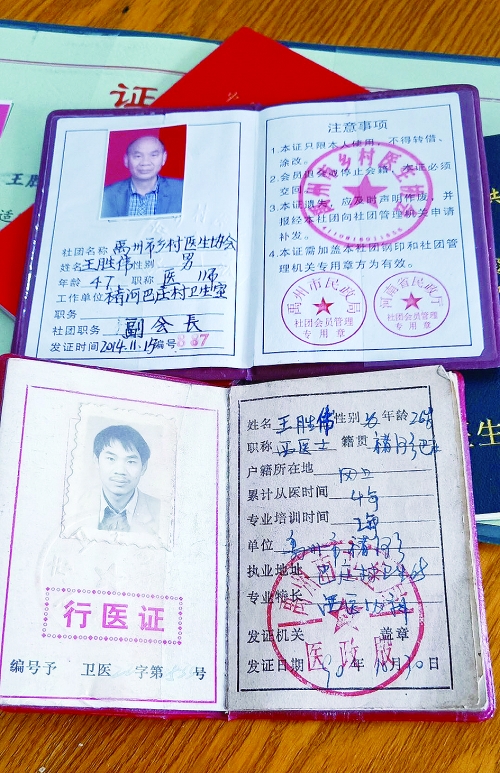 证
王胜
适
社团名称 禹州市乡村医生协会
姓名 王胜伟 性别 男
年龄 47 医师
工作单位 褚河巴庄村卫生室
职务
社团职务 副会长
发证时间 2014.11.15 编号
注意事项
1.本证只限本人使用，不得转借、
涂改。
2.会员退会或停止会籍，本证必须
交回。
3.本证遗失，应及时声明作废，并
报经本社团向社团管理机关申请
补发。
4.本证需加盖本社团钢印和社团管
理机关专用章方为有效。
乡村医
禹州市民政局
社团会员管理
专用章
河南省民政厅
社团会员管理
专用章
行医证
编号予 卫医 字第 号
姓名 王胜伟 性别 男 年龄 26岁
职称 医士 籍贯 褚河
户籍所在地
累计从医时间 4年
专业培训时间 2年
单位 禹州市褚河乡
执业地址 巴庄村卫生所
专业特长 西医内科
发证机关 盖章
发证日期 年 10月 日
医政股
医
生